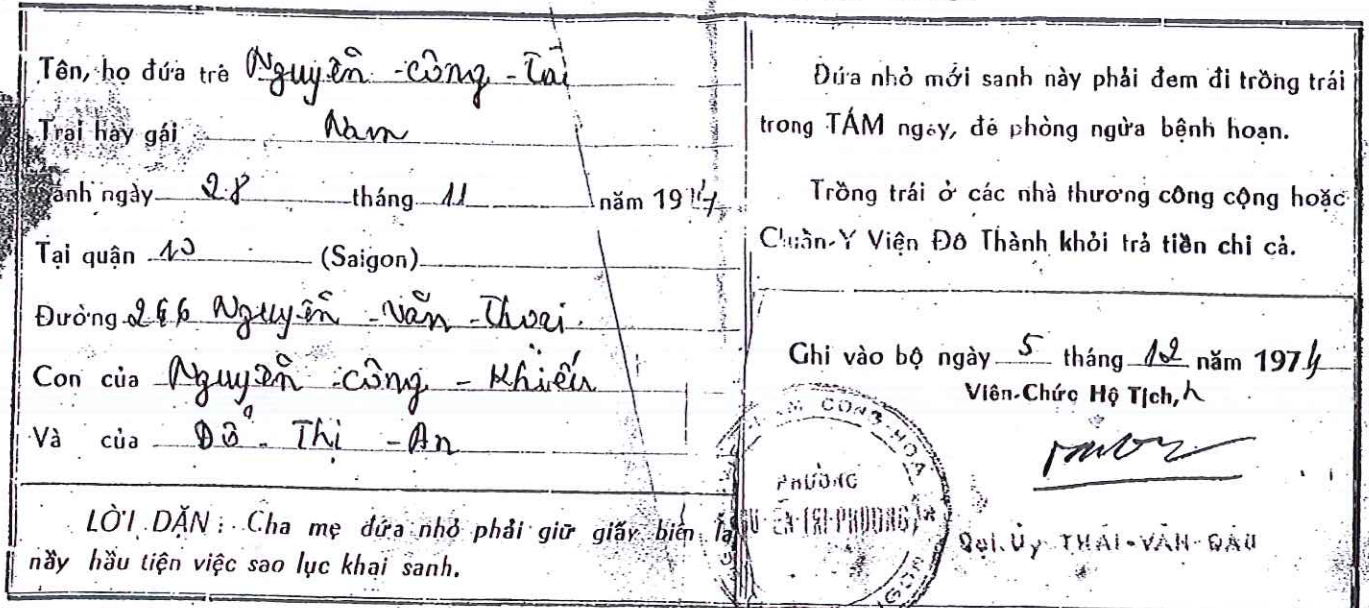 Tên, họ đứa trẻ Nguyễn - Công - Tài
Trai hay gái Nam
Sanh ngày 28 tháng 11 năm 1974
Tại quận 10 (Saigon)
Đường 266 Nguyễn - Văn - Thoại
Con của Nguyễn - Công - Khiếu
Và của Đỗ - Thị - An
LỜI DẶN : Cha mẹ đứa nhỏ phải giữ giấy biên lai
nầy hầu tiện việc sao lục khai sanh.
Đứa nhỏ mới sanh này phải đem đi trồng trái
trong TÁM ngày, để phòng ngừa bệnh hoạn.
Trồng trái ở các nhà thương công cộng hoặc
Chuẩn-Y Viện Đô Thành khỏi trả tiền chi cả.
Ghi vào bộ ngày 5 tháng 12 năm 1974
Viên-Chức Hộ Tịch,
CỘNG-HÒA
PHƯỜNG
NGUYỄN-TRI-PHƯƠNG
Đại.Úy THÁI-VĂN-ĐẬU